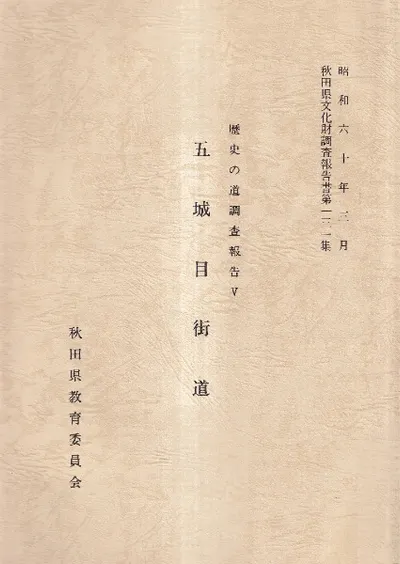 昭和六十年三月
秋田県文化財調査報告書第一二一集
歴史の道調査報告Ⅴ
五城目街道
秋田県教育委員会